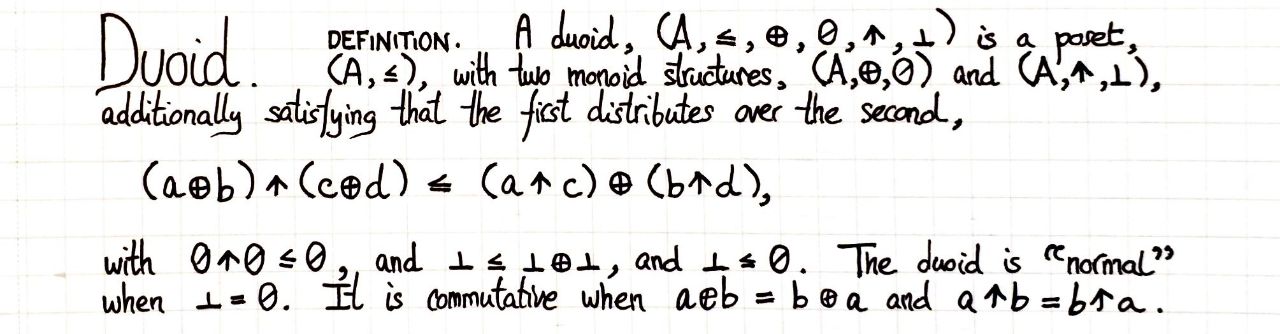 Duoid. DEFINITION. A duoid, (A, ≤, ⊕, 0, ↑, ⊥) is a poset,
(A, ≤), with two monoid structures, (A,⊕,0) and (A,↑,⊥),
additionally satisfying that the first distributes over the second,
(a⊕b) ↑ (c⊕d) ≤ (a↑c) ⊕ (b↑d),
with 0↑0 ≤ 0, and ⊥ ≤ ⊥⊕⊥, and ⊥ ≤ 0. The duoid is “normal”
when ⊥ = 0. It is commutative when a⊕b = b⊕a and a↑b = b↑a.